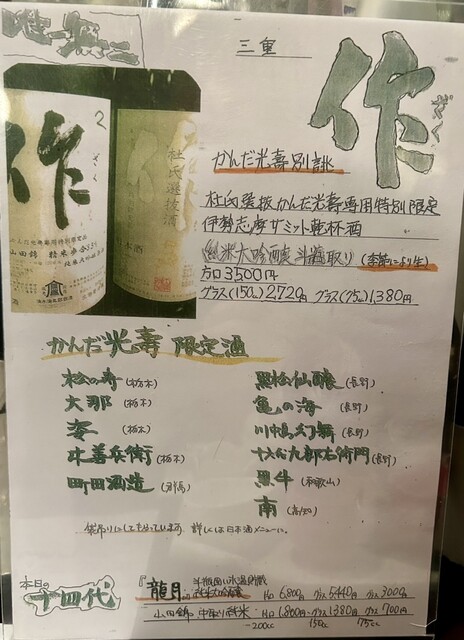 唯一無二
三重
作
ざく
かんだ光壽別誂
杜氏選抜かんだ光壽専用特別限定
伊勢志摩サミット乾杯酒
純米大吟醸 斗瓶取り
片口3,500円
グラス(150cc)2,720円 グラス(75cc)1,380円
作
ざく
杜氏選抜酒
日本酒
山田錦
かんだ光壽 限定酒
松の寿(栃木)
大那(栃木)
(栃木)
井善兵衛(栃木)
町田酒造(群馬)
黒松仙醸(長野)
亀の海(長野)
川中島幻舞(長野)
十六代九郎右衛門(長野)
黒牛(和歌山)
南(高知)
袋吊りにしてもらっています 詳しくは日本酒メニューに。
本日の
十四代
『龍月』
純米大吟醸
片口 6,800円 グラス5,440円 グラス3,000円
山田錦 中取り純米:片口 1,860円・グラス1,380円 グラス700円
200cc 150cc 75cc